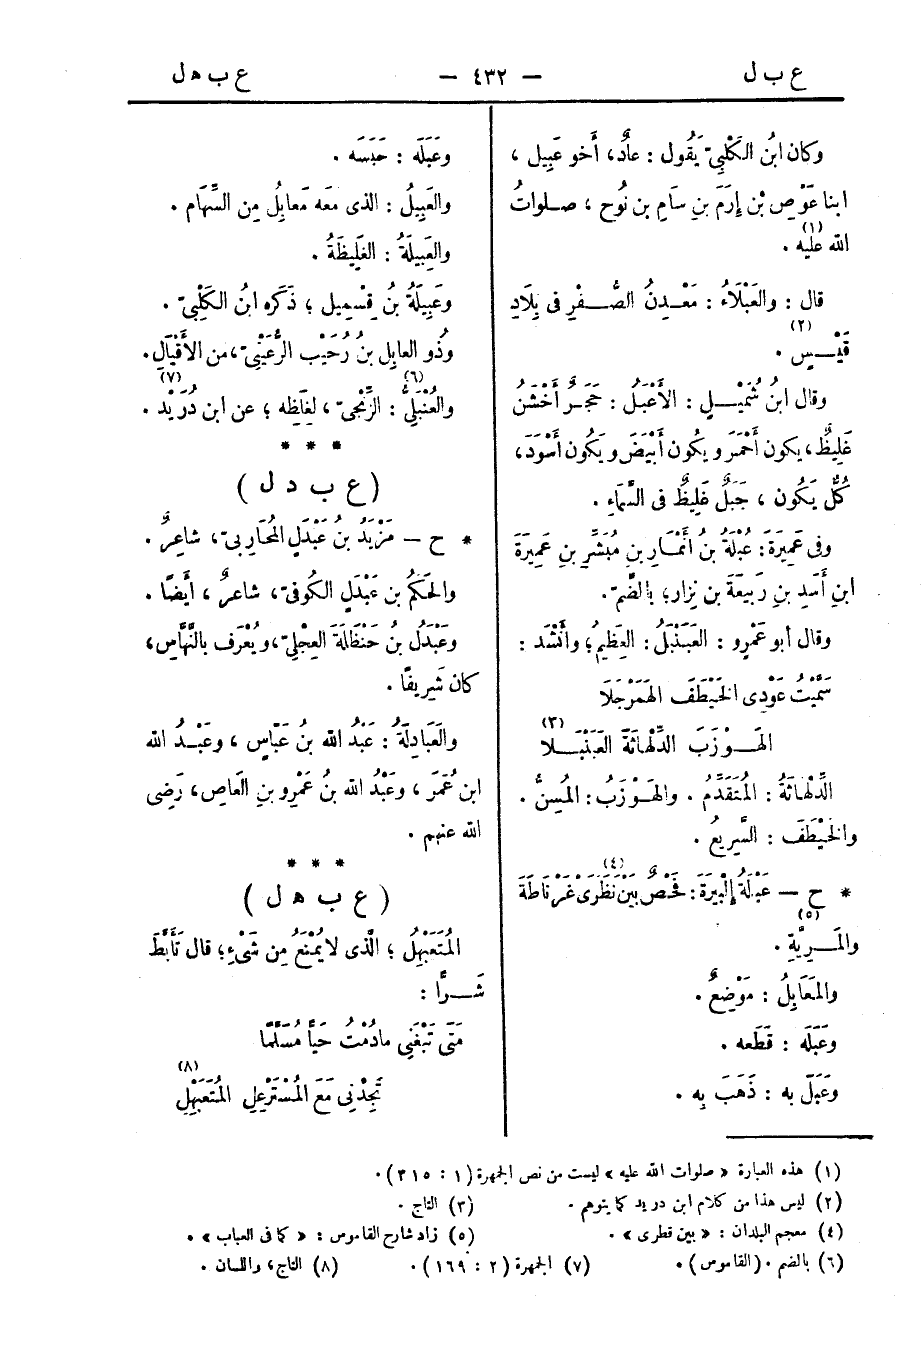 ع ب ل — ٤٣٢ — ع ب ه ل
وكان ابنُ الكَلْبِيّ يَقُول : عادٌ، أَخو عَبِيل ،
ابنا عَوْص بْن إِرَمَ بنِ سَامِ بن نُوح ، صلواتُ
الله عليه (١) .
قال : والعَبْلَاءُ : مَعْدِنُ الصُّفْرِ فى بِلَادِ
قَيْس (٢) .
وقال ابنُ شُمَيْلٍ : الأَعْبَلُ : حَجَرٌ أَخْشَنُ
غَلِيظٌ، يكون أَحْمَرَ ويكون أَبْيَضَ ويكون أَسْوَدَ،
كُلٌّ يَكُون ، جَبَلٌ غَلِيظٌ فى السَّمَاءِ .
وفى عَمِيرَةَ : عُبْلَةُ بنُ أَنْمَارِ بنِ مُبَشِّرِ بنِ عَمِيرَةَ
ابنِ أَسَدِ بنِ رَبِيعَةَ بن نِزار؛ بالضَّمّ.
وقال أبو عَمْرٍو : العَبَنْبَلُ : العَظِيمُ؛ وأَنْشَد :
سَمَّيْتُ عَوْدِى الخَيْطَفَ الهَمَرْجَلَا
الهَوْزَبَ الدِّلْهَاثَةَ العَبَنْبَلَا (٣)
الدِّلْهَاثَةُ : المُتَقَدِّمُ . والهَوْزَبُ : المُسِنُّ .
والخَيْطَفُ : السَّرِيعُ .
* ح — عَبْلَةُ إِلْبِيرَةَ : فَحْصٌ بَيْنَ نَظَرَىْ (٤) غَرْنَاطَةَ
والمَرِيَّةِ (٥) .
والمَعَابِلُ : مَوْضِعٌ .
وعَبَلَه : قَطَعه .
وعَبَلَ به : ذَهَبَ بِه .
وعَبَلَه : حَبَسَه .
والعَبِيلُ : الذى مَعَه مَعابِلُ مِن السِّهَام .
والعَبِيلَةُ : الغَلِيظَةُ .
وعَبِيلَةُ بنُ قِسْمِيل ؛ ذَكَره ابنُ الكَلْبِيّ .
وذُو العابِل بنُ رُحَيْب الرُّعَيْنِيّ، من الأَقْيَالِ.
والعُنْبُلِيُّ (٦) : الزِّنْجِيّ ، لِغِلَظِه ؛ عن ابن دُرَيْد (٧) .
* * *
( ع ب د ل )
* ح — مَزْيَدُ بنُ عَبْدَلٍ المُحَارِبيّ، شاعِرٌ .
والحَكَمُ بن عَبْدَلٍ الكُوفِىّ ، شاعرٌ ، أَيضًا .
وعَبْدَلُ بنُ حَنْظَلَةَ العِجْلِيّ، ويُعْرَف بالنَّهَّاسِ،
كان شَرِيفًا .
والعَبَادِلَةُ : عَبْدُ الله بنُ عَبَّاسٍ ، وعَبْدُ الله
ابنُ عُمَرَ ، وعَبْدُ الله بنُ عَمْرِو بنِ العَاصِ، رَضِى
الله عنهم .
* * *
( ع ب ه ل )
المُتَعَبْهِلُ ؛ الَّذى لا يُمْنَعُ مِن شَىْءٍ؛ قال تَأَبَّطَ
شَرًّا :
مَتَى تَبْغَنِى مادُمْتُ حَيًّا مُسَلَّمًا
تَجِدْنِى مَعَ المُسْتَرْعِلِ المُتَعَبْهِلِ (٨)
(١) هذه العبارة « صلوات الله عليه » ليست من نص الجمهرة (١ : ٣١٥) .
(٢) ليس هذا من كلام ابن دريد كما يتوهم . (٣) التاج .
(٤) معجم البلدان : « بين قطرى » . (٥) زاد شارح القاموس : « كما فى العباب » .
(٦) بالضم . (القاموس) . (٧) الجمهرة (٢ : ١٦٩) . (٨) التاج، واللسان .